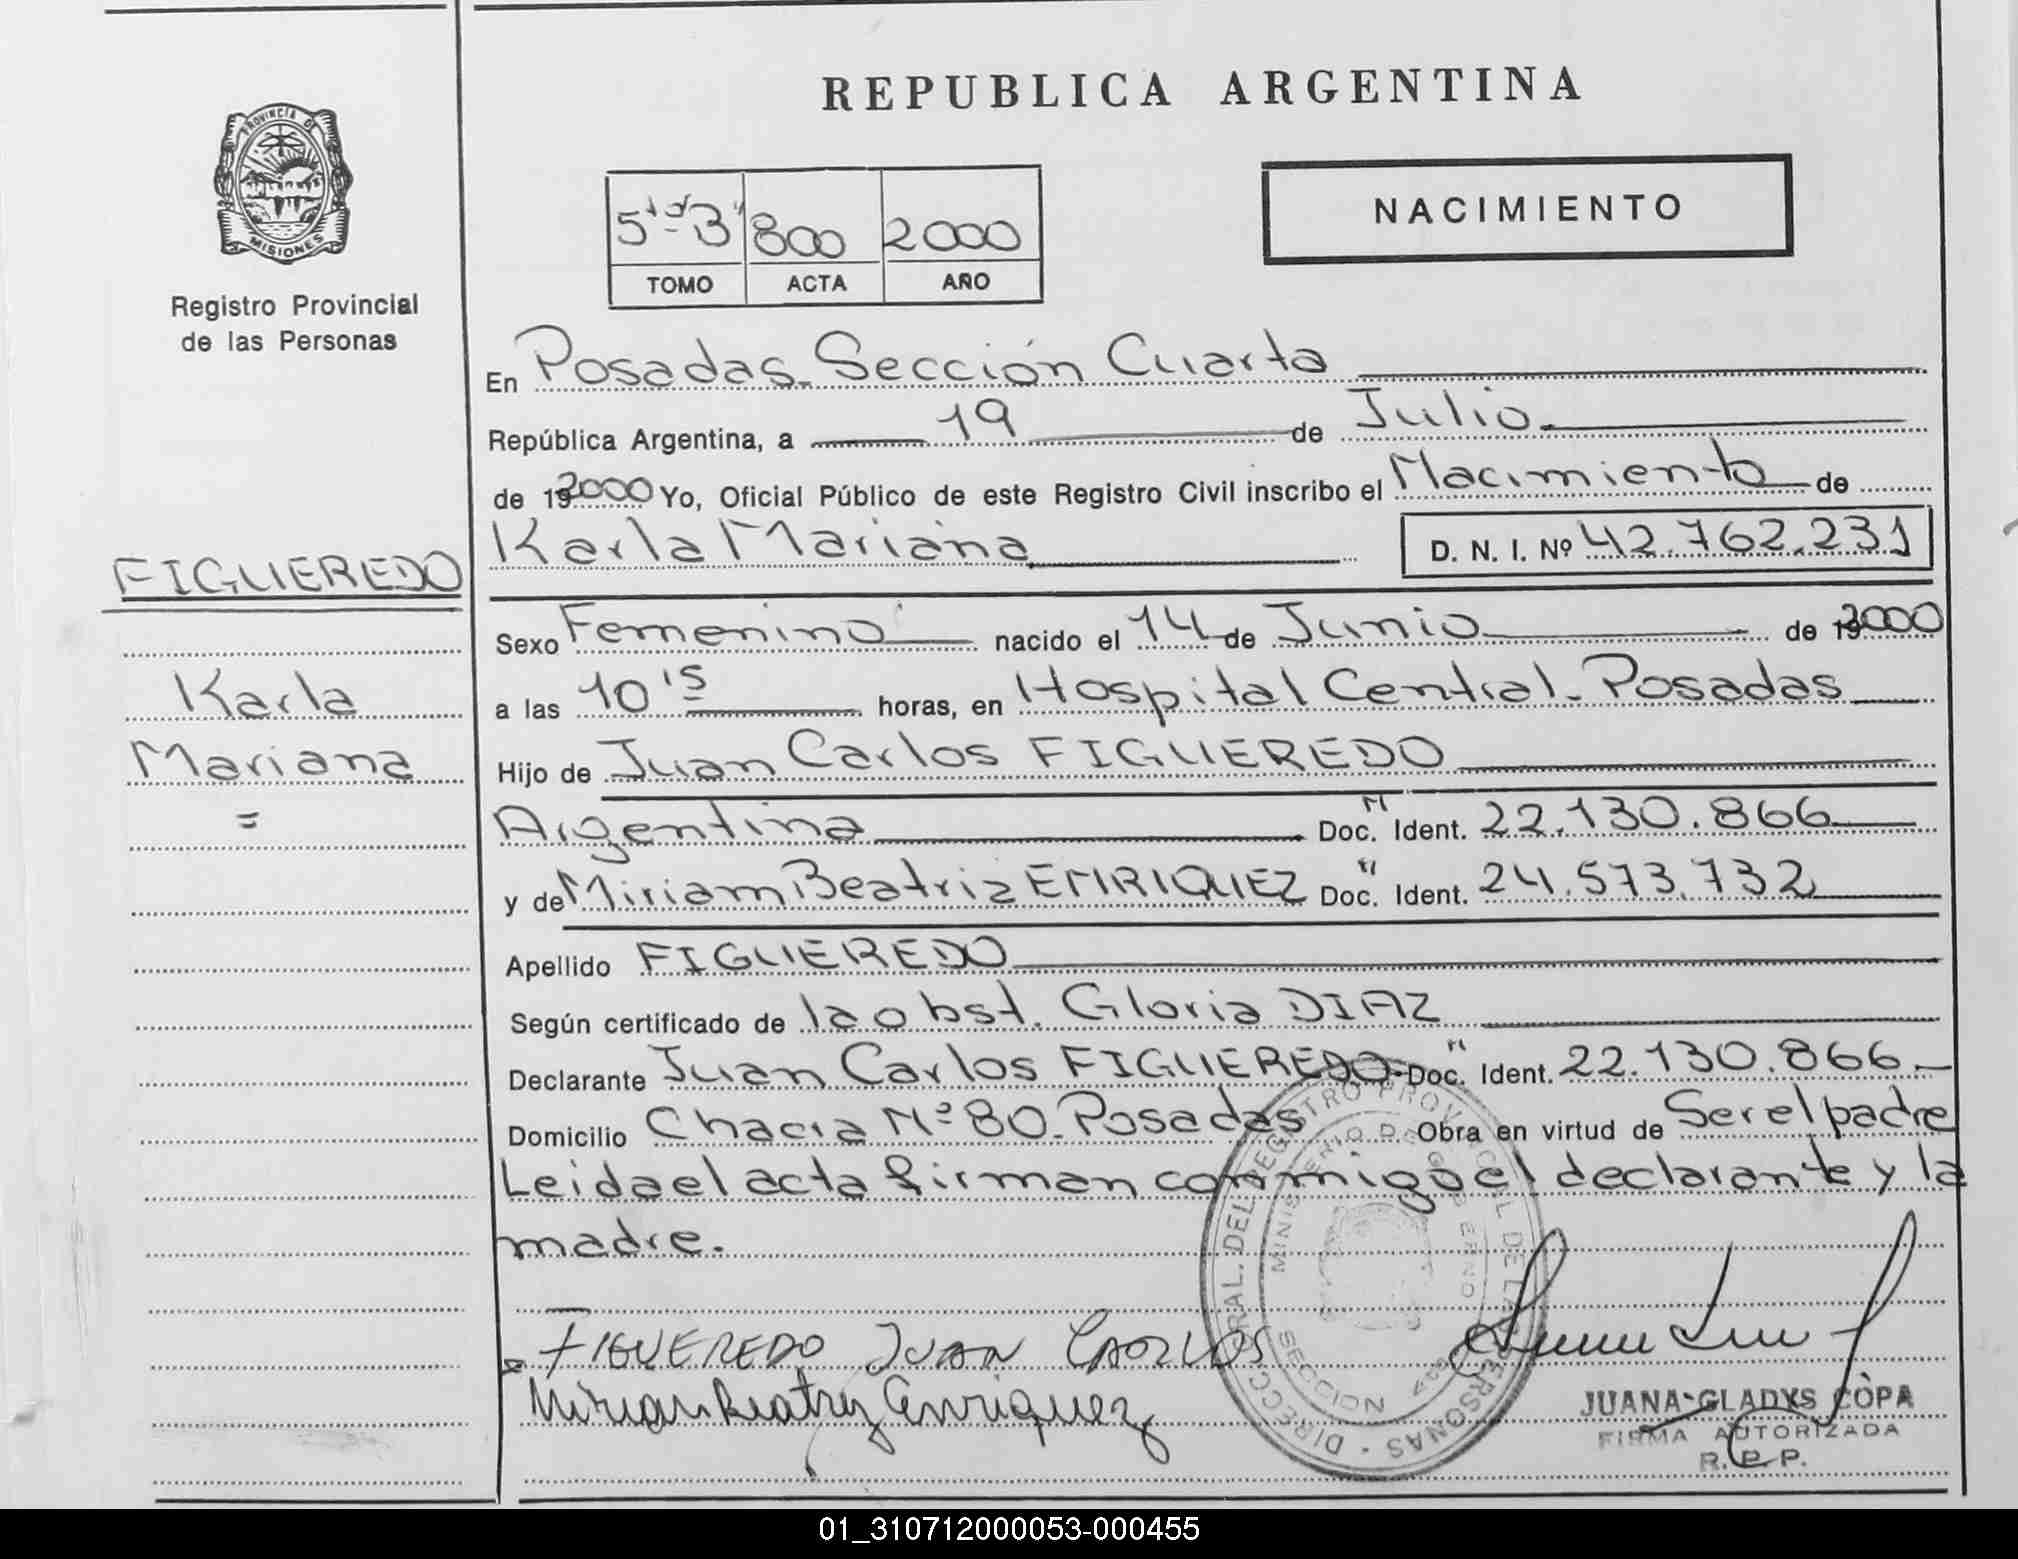 REPUBLICA ARGENTINA
PROVINCIA DE
MISIONES
Registro Provincial
de las Personas
5ta "B" 800 2000
TOMO ACTA AÑO
NACIMIENTO
En Posadas - Sección Cuarta
República Argentina, a 19 de Julio.
de 192000 Yo, Oficial Público de este Registro Civil inscribo el Nacimiento de
Karla Mariana D. N. I. Nº 42.762.231
FIGUEREDO
Karla
Mariana
=
Sexo Femenino nacido el 14 de Junio de 192000
a las 10'5 horas, en Hospital Central - Posadas
Hijo de Juan Carlos FIGUEREDO
Argentina Doc. "N" Ident. 22.130.866
y de Miriam Beatriz ENRIQUEZ Doc. " Ident. 24.573.732
Apellido FIGUEREDO
Según certificado de la obst. Gloria DIAZ
Declarante Juan Carlos FIGUEREDO - Doc. "N" Ident. 22.130.866
Domicilio Chacra Nº 80 - Posadas Obra en virtud de Ser el padre
Leida el acta firman conmigo el declarante y la
madre.
FIGUEREDO JUAN CARLOS
Mirian Beatriz Enriquez
DIRECC. GRAL. DEL REGISTRO PROVINCIAL DE LAS PERSONAS
MINISTERIO DE GOBIERNO
SECCION 4ta
JUANA GLADYS COPA
FIRMA AUTORIZADA
R. P. P.
01_310712000053-000455